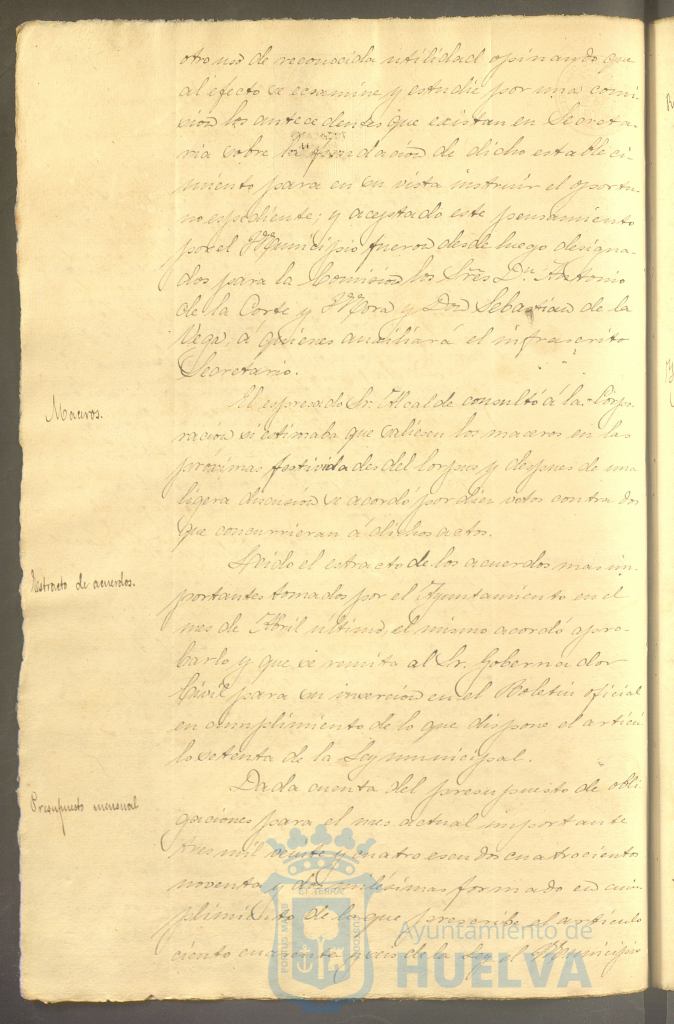 otro uso de reconocida utilidad opinando que
al efecto se ecsamine y estudie por una comi-
sion los antecedentes que existan en Secreta-
ria sobre la fundacion de dicho estableci-
miento para en su vista instruir el oportu-
no espediente; y aceptado este pensamiento
por el Municipio fueron desde luego designa-
dos para la Comision los Sres Dn. Antonio
de la Corte y Mora y Don Sebastian de la
Vega, á quienes auxiliará el infrascrito
Secretario.
Maceros.
El espresado Sr. Alcalde consultó á la Corpo-
racion si estimaba que saliesen los maceros en las
próximas festividades del Corpus y despues de una
ligera discusion se acordó por diez votos contra dos
que concurrieran á dichos actos.
Estracto de acuerdos.
Leido el estracto de los acuerdos mas im-
portantes tomados por el Ayuntamiento en el
mes de Abril último, el mismo acordó apro-
barlo y que se remita al Sr. Gobernador
Civil para su insercion en el Boletin oficial
en cumplimiento de lo que dispone el articu-
lo setenta de la Ley municipal.
Presupuesto mensual
Dada cuenta del presupuesto de obli-
gaciones para el mes actual importante
tres mil veinte y cuatro escudos cuatrocientos
noventa y dos milésimas formado en cum-
plimiento de lo que prescribe el articulo
ciento cuarenta y seis de la Ley el Municipio
PORTUS MARIS
ET TERRÆ
CUSTODIA
Ayuntamiento de
HUELVA